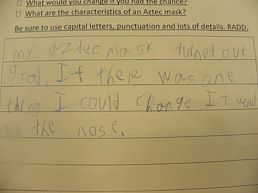 What would you change if you had the chance?
What are the characteristics of an Aztec mask?
Be sure to use capital letters, punctuation and lots of details. RADD.
my aztec mask turned out
good. If there was one
thing I could change IT woul
the nose.